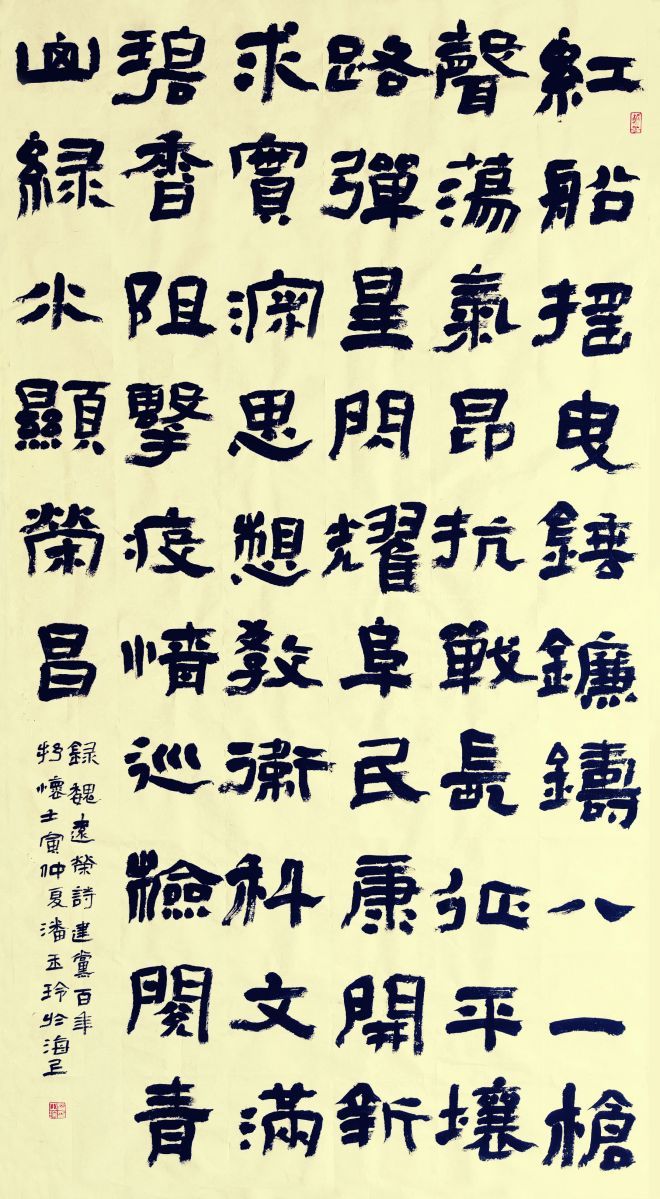 紅船搖曳錘鐮鑄八一槍
聲蕩氣昂抗戰長征平壤
路彈星閃耀阜民康開新
求實深思想教衛科文滿
碧香阻擊疫情巡檢閱青
山綠水顯榮昌
錄魏遠榮詩建黨百年
抒懷壬寅仲夏潘玉玲於海上